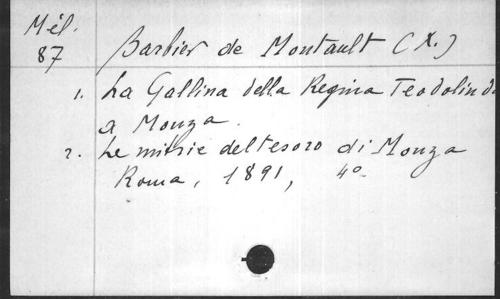 Mél.
87
Barbier de Montault (X.)
1. La Gallina della Regina Teodolinda
a Monza.
2. Le mitrie del tesoro di Monza
Roma, 1891, 4º